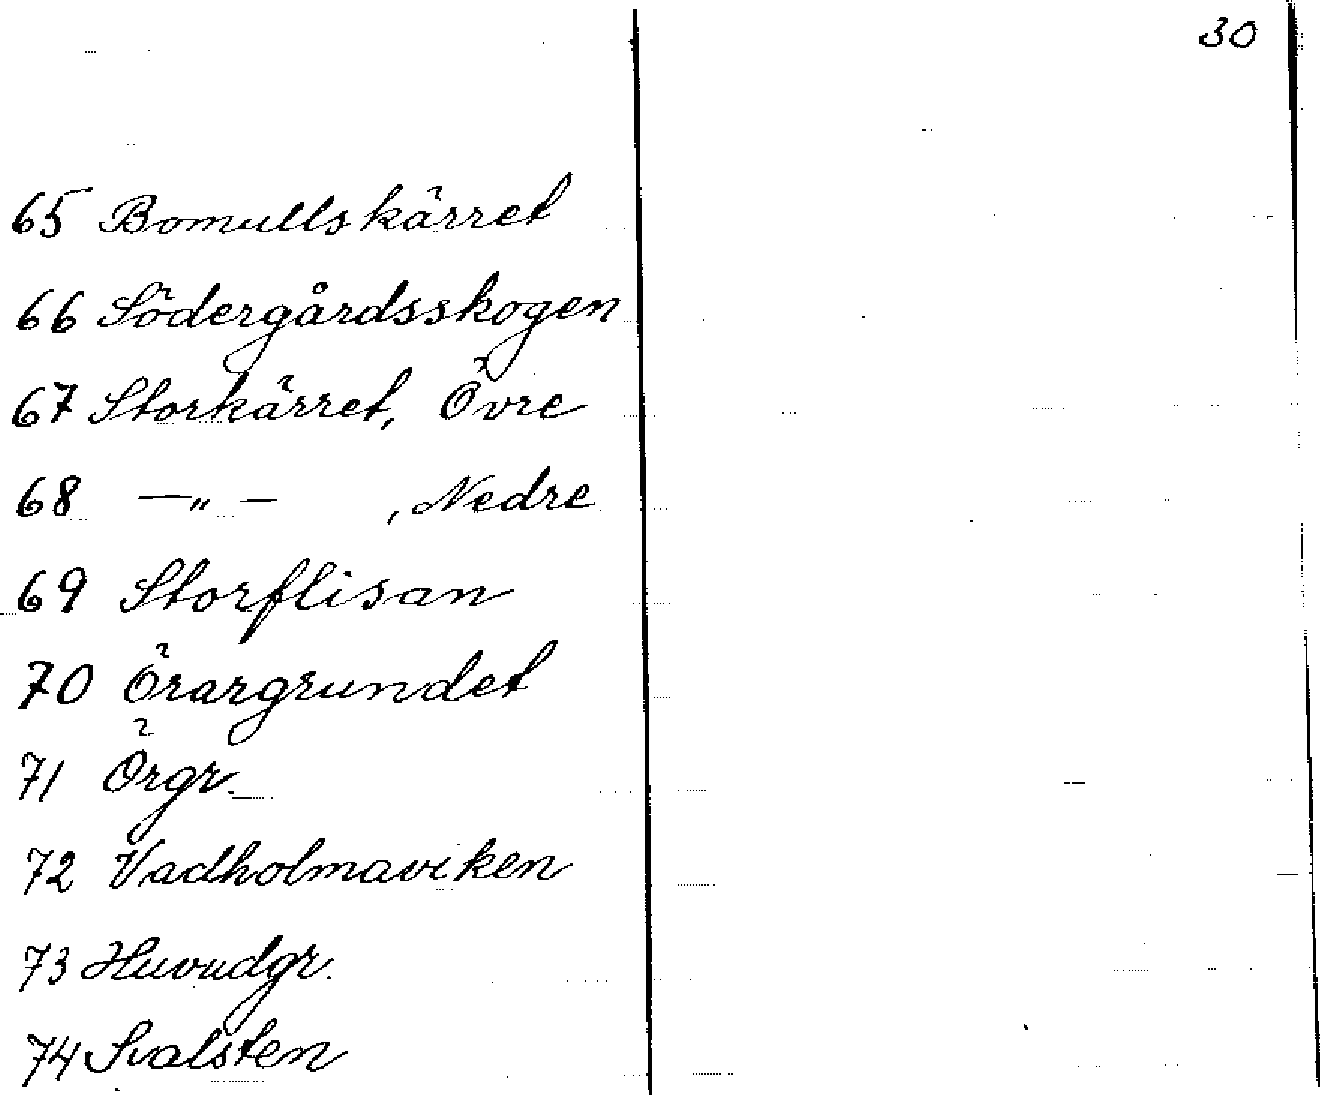 30
65 Bomullskärret
66 Södergårdsskogen
67 Storkärret, Övre
68 —„— , Nedre
69 Storflisan
70 Örargrundet
71 Örgr.
72 Vadholmaviken
73 Huvudgr.
74 Svalsten